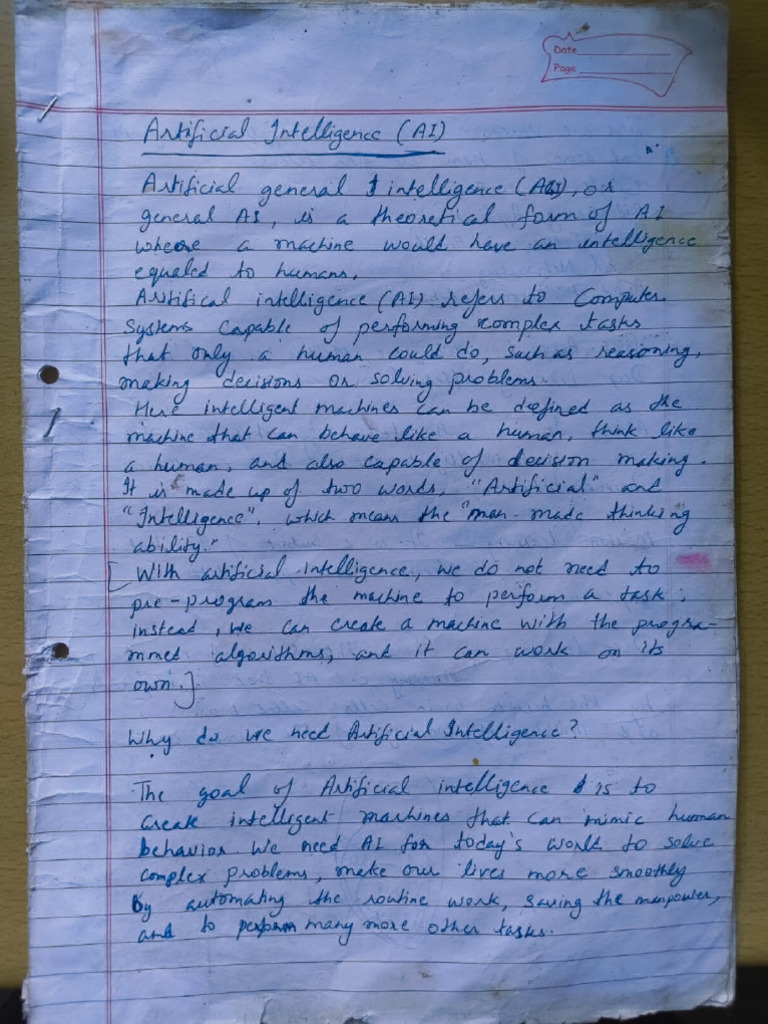 Date
Page
Artificial Intelligence (AI)
Artificial general intelligence (AGI), or
general AI, is a theoretical form of AI
where a machine would have an intelligence
equaled to humans.
Artifical intelligence (AI) refers to Computer
Systems capable of performing complex tasks
that only a human could do, such as reasoning,
making decisions or solving problems.
Here intelligent machines can be defined as the
machine that can behave like a human, think like
a human, and also capable of decision making.
It is made up of two words, "Artificial" and
"Intelligence", which means the "man-made thinking
ability."
[With artificial intelligence, we do not need to
pre-program the machine to perform a task;
instead, we can create a machine with the progra-
mmed algorithms, and it can work on its
own.]
Why do we need Artificial Intelligence?
The goal of Artificial intelligence is to
create intelligent machines that can mimic human
behavior we need AI for today's world to solve
complex problems, make our lives more smoothly
by automating the routine work, saving the manpower,
and to perform many more other tasks.